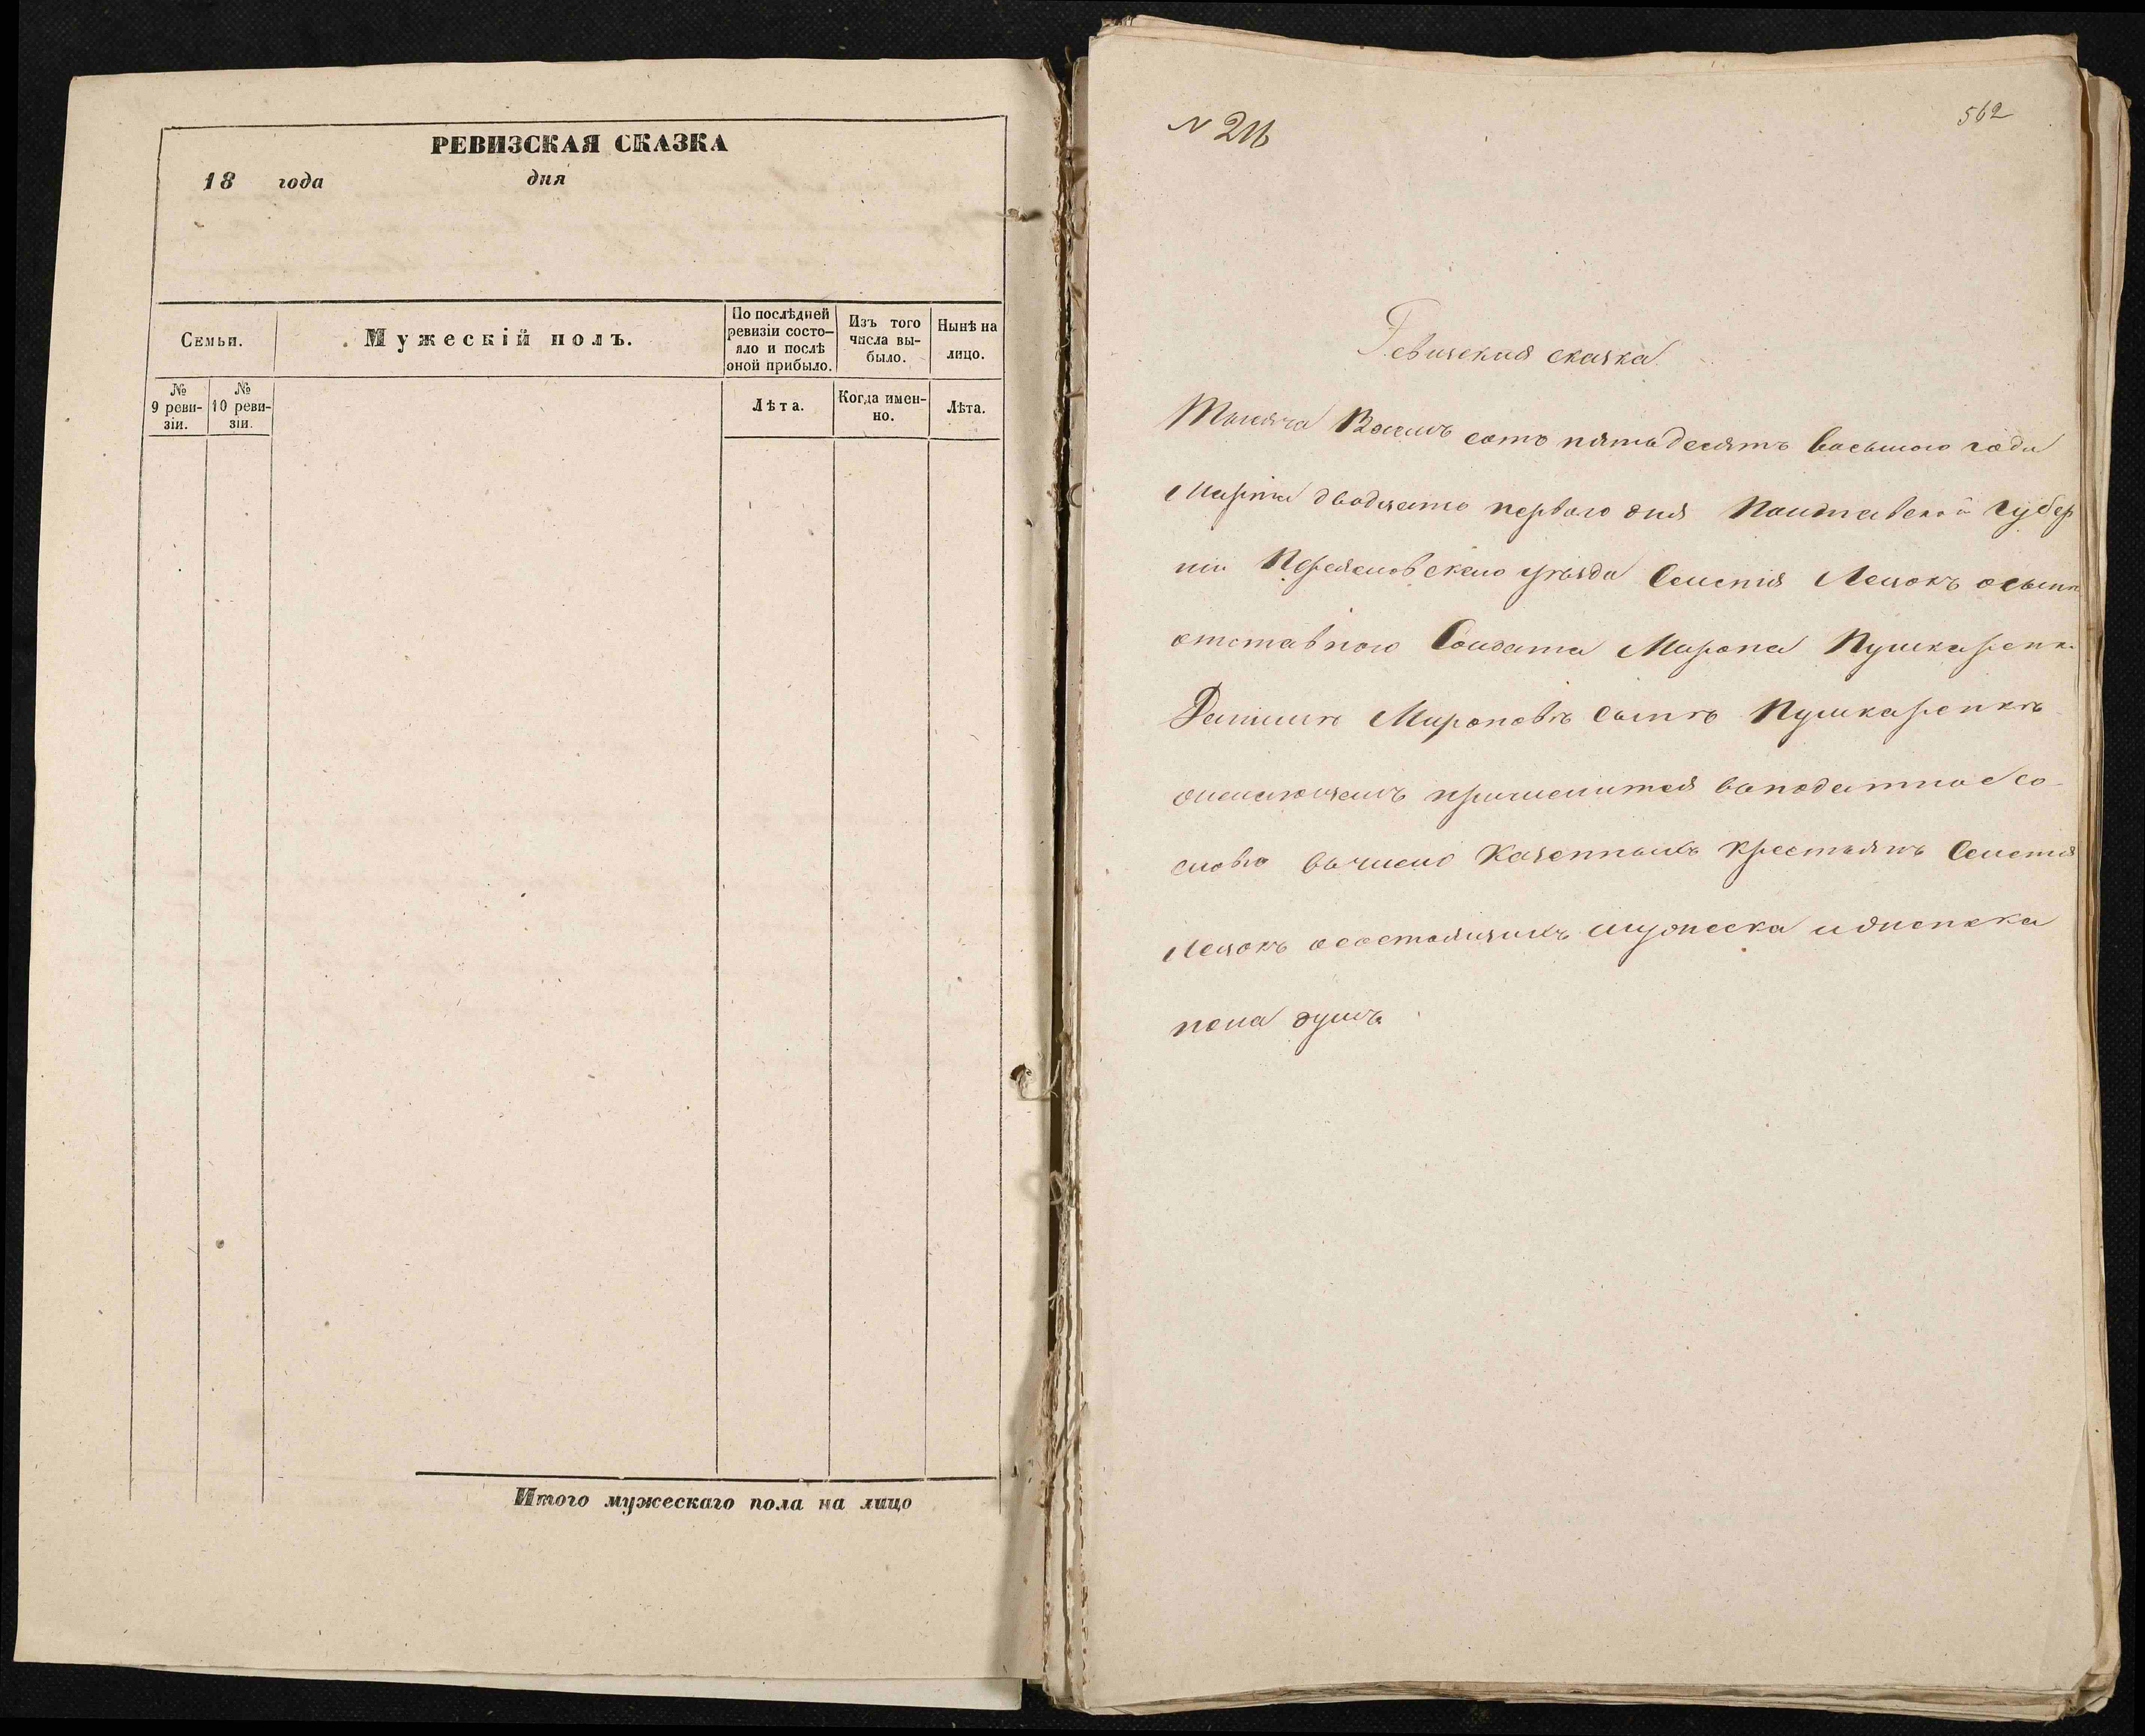 РЕВИЗСКАЯ СКАЗКА
18 года дня
Семьи.
Мужескій полъ.
По послѣдней
ревизіи состо-
яло и послѣ
оной прибыло.
Изъ того
числа вы-
было.
Нынѣ на
лицо.
№
9 реви-
зіи.
№
10 реви-
зіи.
Лѣта.
Когда имен-
но.
Лѣта.
Итого мужескаго пола на лицо
562
Ревизская сказка
Тысяча Восимъ сотъ пятьдесятъ восьмого года
Марта двадцать первого дня Полтавской Губер
ніи уѣзда Селенія Лецокъ осынѣ
отставного Солдата Мирона Пушкаренк
Данилѣ Мироновѣ сынѣ Пушкаренкѣ
причислится воподатное со
словіе вчисло Казенныхъ крестьянъ Селенія
Лецокъ осостоящихъ мужеска иженска
пола душъ